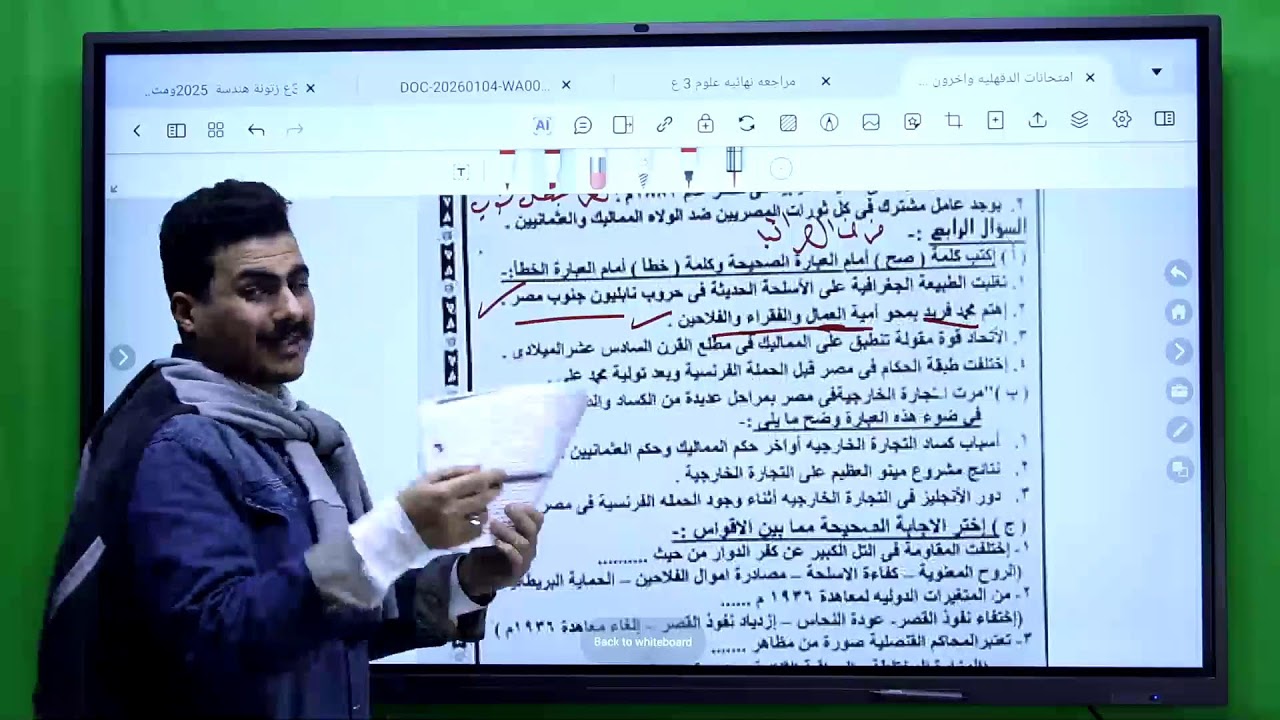 ع زتونة هندسة 2025ومت..
DOC-20260104-WA00...
مراجعه نهائيه علوم 3 ع
امتحانات الدقهليه واخرون ...
AI
T
٢. يوجد عامل مشترك فى كل ثورات المصريين ضد الولاه المماليك والعثمانيين .
السؤال الرابع :-
( أ ) إكتب كلمة ( صح ) أمام العبارة الصحيحة وكلمة ( خطأ ) أمام العبارة الخطأ:-
١. تغلبت الطبيعة الجغرافية على الأسلحة الحديثة فى حروب نابليون جنوب مصر .
٢. إهتم محمد فريد بمحو أمية العمال والفقراء والفلاحين .
٣. الأتحاد قوة مقولة تنطبق على المماليك فى مطلع القرن السادس عشر الميلادى .
٤. إختلفت طبقة الحكام فى مصر قبل الحملة الفرنسية وبعد تولية محمد على
( ب )"مرت التجارة الخارجيةفى مصر بمراحل عديدة من الكساد
فى ضوء هذه العبارة وضح ما يلى :-
١. أسباب كساد التجارة الخارجيه أواخر حكم المماليك وحكم العثمانيين
٢. نتائج مشروع مينو العظيم على التجارة الخارجية .
٣. دور الأنجليز فى التجارة الخارجيه أثناء وجود الحمله الفرنسية فى مصر
( ج ) إختر الاجابة الصحيحة مما بين الاقواس :-
١- إختلفت المقاومة فى التل الكبير عن كفر الدوار من حيث ..........
(الروح المعنوية – كفاءة الاسلحة – مصادرة اموال الفلاحين – الحماية
٢- من المتغيرات الدوليه لمعاهدة ١٩٣٦ م ......
(إختفاء نفوذ القصر- عودة النحاس – إزدياد نفوذ القصر – إلغاء معاهدة ١٩٣٦م )
Back to whiteboard
٣- تعتبرالمحاكم القنصلية صورة من مظاهر .......